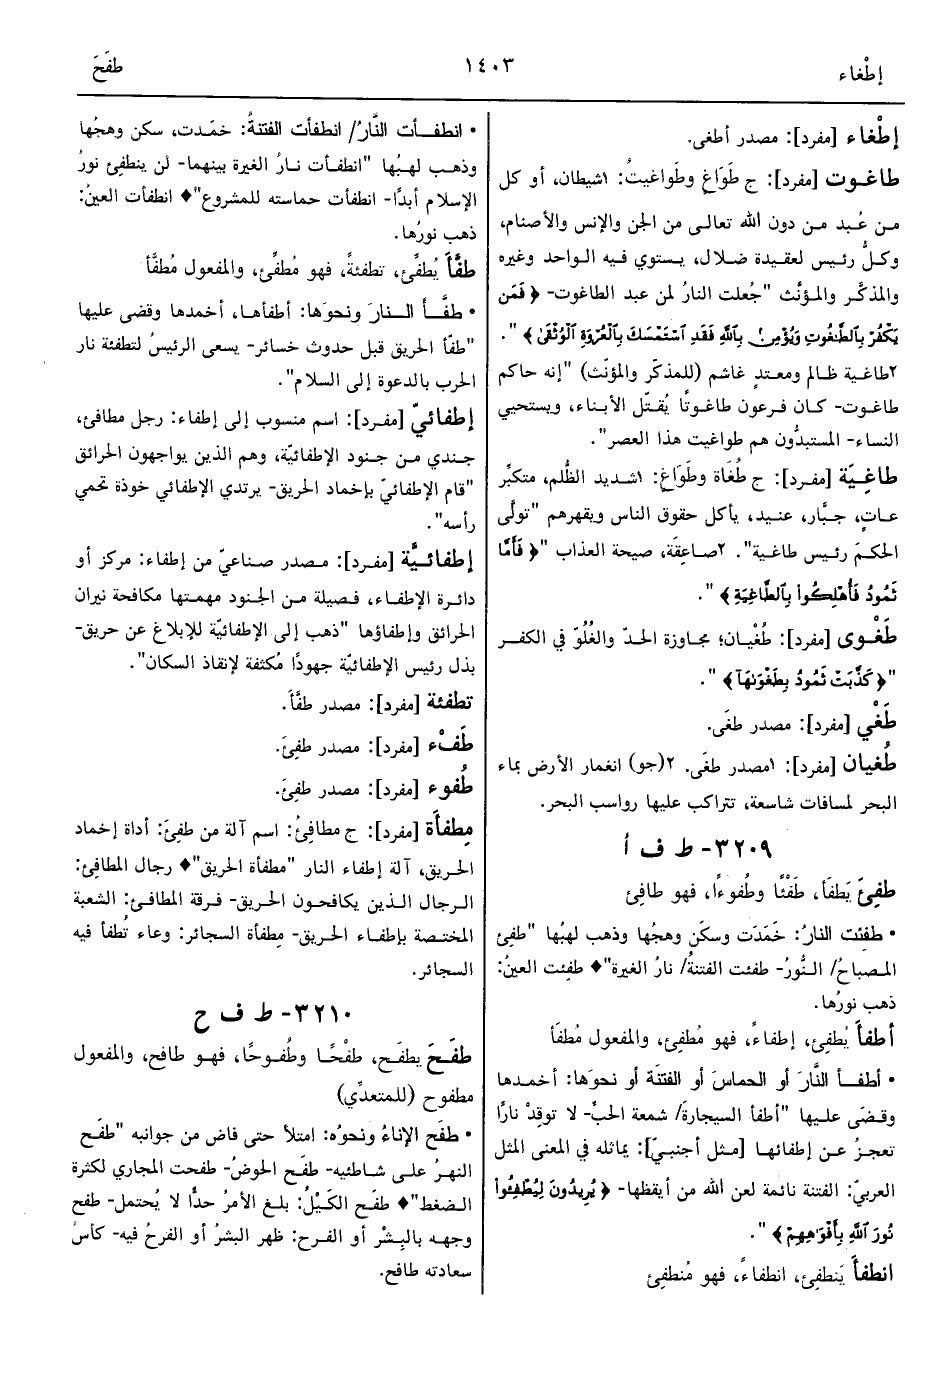 إطْغاء
١٤٠٣
طفَحَ
إطْغاء [مفرد]: مصدر أطغى.
طاغوت [مفرد]: ج طَوَاغٍ وطَواغيتُ: ١شيطان، أو كل
من عُبد من دون الله تعالى من الجن والإنس والأصنام،
وكلُّ رئيس لعقيدة ضلال، يستوي فيه الواحد وغيره
والمذكَّر والمؤنَّث "جُعلت النارُ لمن عبد الطاغوت- ﴿ فَمَن
يَكْفُرْ بِٱلطَّٰغُوتِ وَيُؤْمِنۢ بِٱللَّهِ فَقَدِ ٱسْتَمْسَكَ بِٱلْعُرْوَةِ ٱلْوُثْقَىٰ ﴾ ".
٢طاغية ظالم ومعتدٍ غاشم (للمذكّر والمؤنّث) "إنه حاكم
طاغوت- كان فرعون طاغوتًا يُقتِّل الأبناء، ويستحيي
النساء- المستبدُّون هم طواغيت هذا العصر".
طاغِيَة [مفرد]: ج طُغَاة وطَوَاغٍ: ١شديد الظُّلم، متكبِّر
عـاتٍ، جبَّار، عنيد، يأكل حقوق الناس ويقهرهم "تولَّى
الحكمَ رئيس طاغية". ٢صاعِقَة، صيحة العذاب "﴿ فَأَمَّا
ثَمُودُ فَأُهْلِكُوا۟ بِٱلطَّاغِيَةِ ﴾ ".
طَغْوى [مفرد]: طُغْيان؛ مجاوزة الحدّ والغُلُوّ في الكفر
"﴿ كَذَّبَتْ ثَمُودُ بِطَغْوَىٰهَآ ﴾ ".
طَغْي [مفرد]: مصدر طغَى.
طُغيان [مفرد]: ١مصدر طغَى. ٢(جو) انغمار الأرض بماء
البحر لمسافات شاسعة، تتراكب عليها رواسب البحر.
٣٢٠٩- ط ف أ
طفِئَ يَطفَأ، طَفْئًا وطُفوءًا، فهو طافِئ
• طفِئت النارُ: خَمَدَت وسكَن وهجُها وذهب لهبُها "طفِئ
المـصباحُ/ النُّورُ- طفئت الفتنةُ/ نارُ الغيرة"♦ طفِئت العينُ:
ذهب نورُها.
أطفأَ يُطفِئ، إطفاءً، فهو مُطفِئ، والمفعول مُطفَأ
• أطفـأ النَّارَ أو الحماسَ أو الفتنَة أو نحوَها: أخمـدها
وقضَى عليها "أطفأ السيجارةَ/ شمعة الحبِّ- لا توقِدْ نارًا
تعجزُ عن إطفائها [مثل أجنبيّ]: يماثله في المعنى المثل
العربيّ: الفتنة نائمة لعن الله من أيقظها- ﴿ يُرِيدُونَ لِيُطْفِـُٔوا۟
نُورَ ٱللَّهِ بِأَفْوَٰهِهِمْ ﴾ ".
انطفأَ يَنطفِئ، انطفاءً، فهو مُنطفِئ
• انطفـأت النَّارُ/ انطفأت الفتنةُ: خمَدت، سكن وهجُها
وذهـب لهبُها "انطفأت نـارُ الغيرة بينهما- لن ينطفِئ نورُ
الإسلام أبدًا- انطفأت حماسته للمشروع"♦ انطفأت العينُ:
ذهب نورُها.
طفَّأَ يُطفِّئ، تطفئةً، فهو مُطفِّئ، والمفعول مُطفَّأ
• طفَّـأ الـنـارَ ونحوَها: أطفأها، أخمدها وقضى عليها
"طفّأ الحريق قبل حدوث خسائر- يسعى الرئيسُ لتطفئة نار
الحرب بالدعوة إلى السلام".
إطفائيّ [مفرد]: اسم منسوب إلى إطفاء: رجل مطافئ،
جندي من جنود الإطفائيّة، وهم الذين يواجهون الحرائق
"قام الإطفائيّ بإخماد الحريق- يرتدي الإطفائي خوذة تحمي
رأسه".
إطفائيَّة [مفرد]: مصدر صناعيّ من إطفاء: مركز أو
دائرة الإطفاء، فصيلة من الجنود مهمتها مكافحة نيران
الحرائق وإطفاؤها "ذهب إلى الإطفائيّة للإبلاغ عن حريق-
بذل رئيس الإطفائيّة جهودًا مُكثفة لإنقاذ السكان".
تطفئة [مفرد]: مصدر طفَّأَ.
طَفْء [مفرد]: مصدر طفِئَ.
طُفوء [مفرد]: مصدر طفِئَ.
مِطفأة [مفرد]: ج مطافِئُ: اسم آلة من طفِئَ: أداة إخماد
الحريق، آلة إطفاء النار "مطفأة الحريق"♦ رجال المطافِئ:
الرجال الذين يكافحون الحريق- فرقة المطافئ: الشعبة
المختصة بإطفاء الحريق- مِطفأة السجائر: وعاء تُطفأ فيه
السجائر.
٣٢١٠- ط ف ح
طفَحَ يطفَح، طفْحًا وطُفـوحًا، فهـو طافح، والمفعول
مطفوح (للمتعدِّي)
• طفَح الإناءُ ونحوُه: امتلأ حتى فاض من جوانبه "طفَـح
النهرُ على شاطئيه- طفَـح الحوضُ- طفحت المجاري لكثرة
الضغط"♦ طفَح الكَيْلُ: بلغ الأمرُ حدًّا لا يُحتمل- طفح
وجهه بالبِشْر أو الفرح: ظهر البشرُ أو الفرحُ فيه- كأسُ
سعادته طافح.